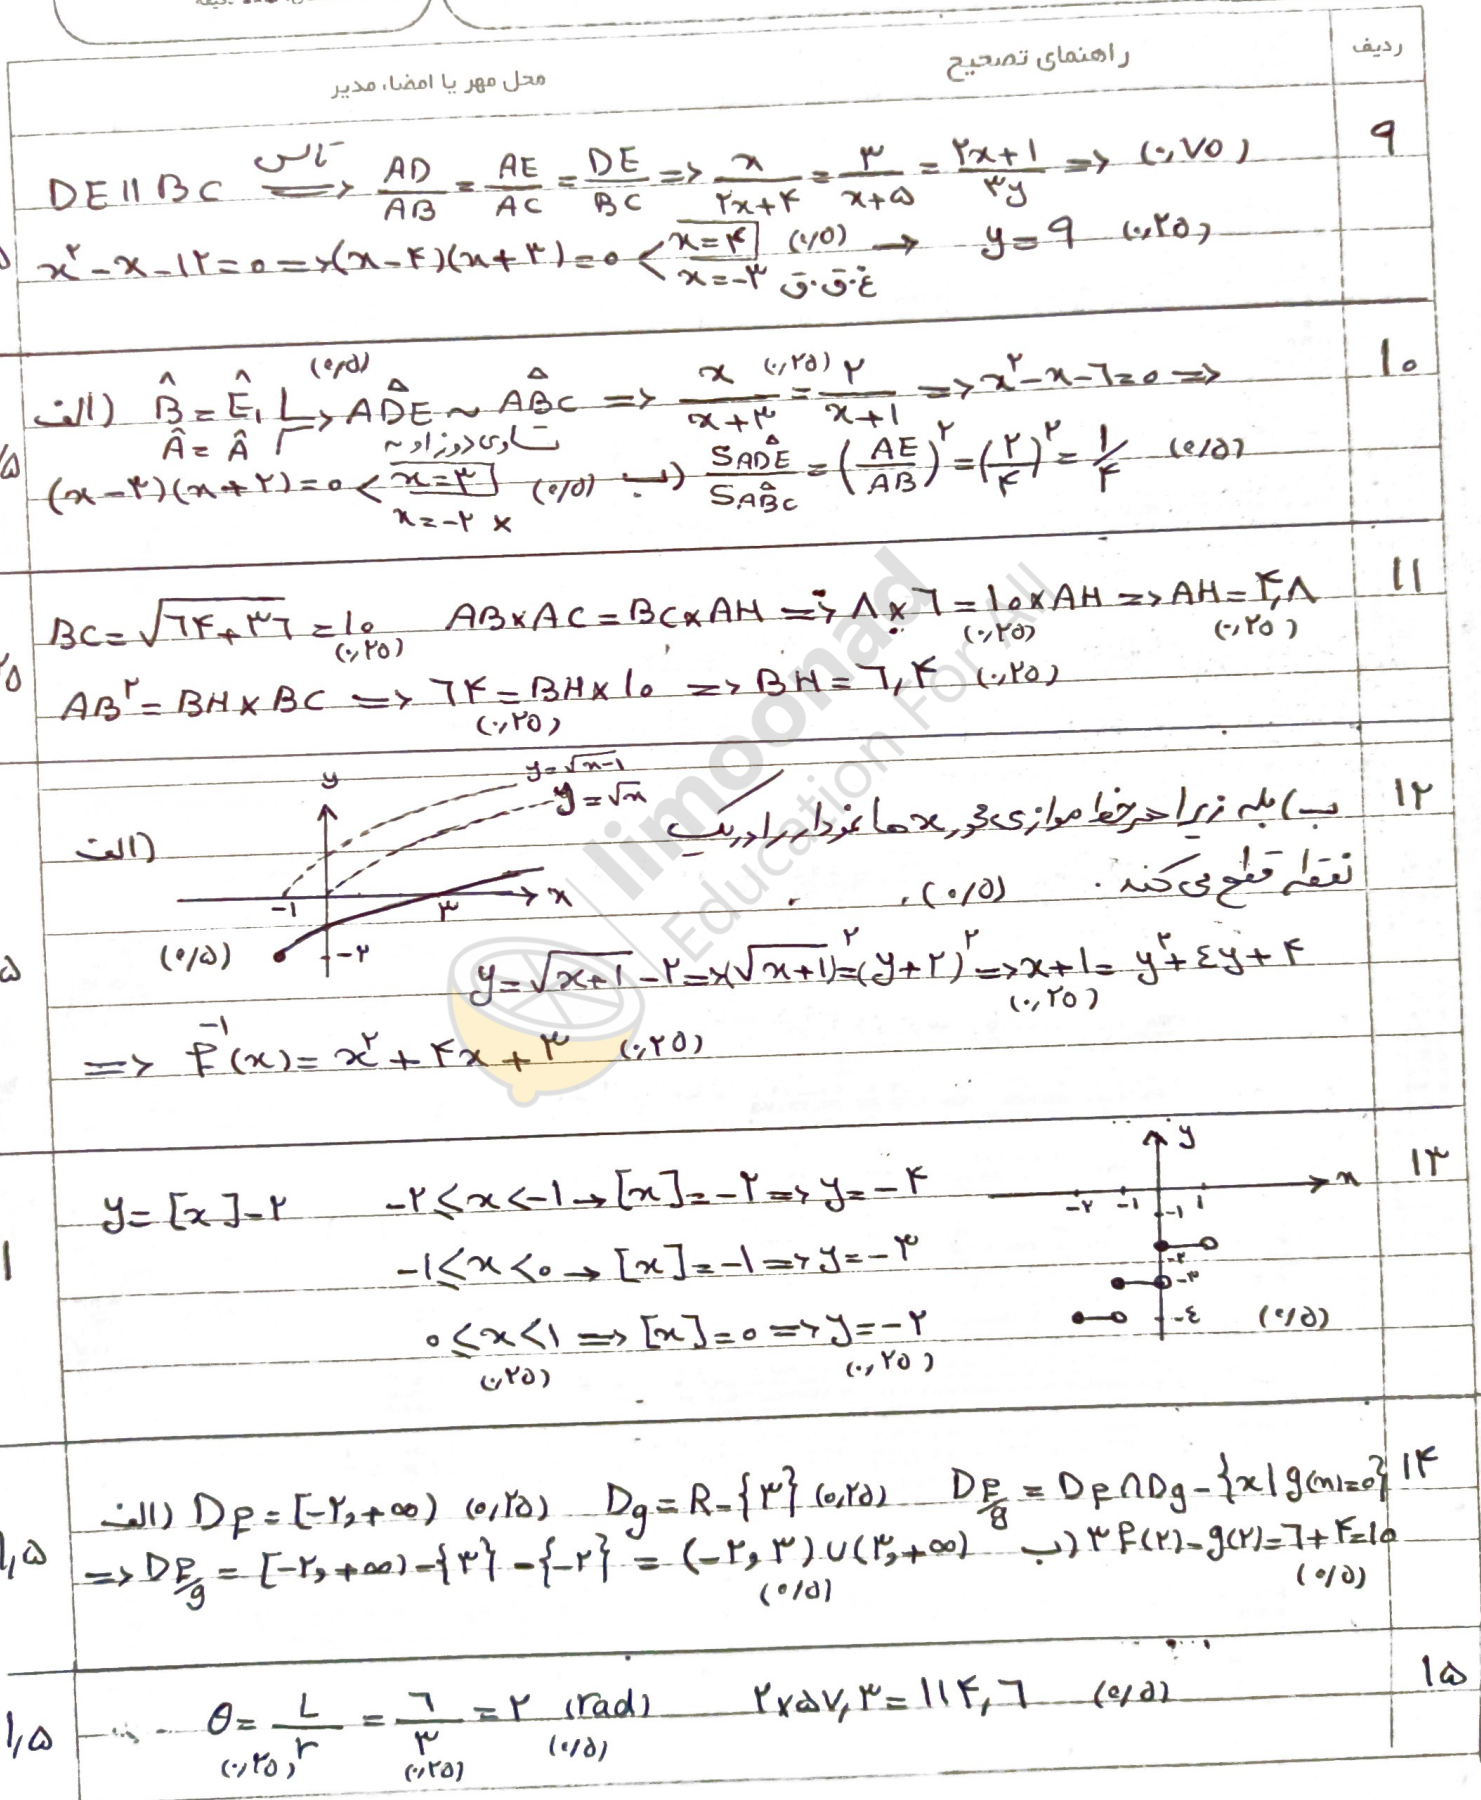 ردیف
راهنمای تصحیح
محل مهر یا امضاء مدیر
۹
DE || BC تالس ⟹ AD/AB = AE/AC = DE/BC ⟹ x/(۲x+۴) = ۳/(x+۵) = (۲x+۱)/۳y ⟹ (۰,۷۵)
x²-x-۱۲=۰ ⟹ (x-۴)(x+۳)=۰ < x=۴ (۰/۵) → y=۹ (۰,۲۵)
x=-۳ غ.ق.ق
۱۰
الف) B̂ = Ê₁ (۰/۵) → ADE ~ ABC ⟹ x/(x+۳) (۰,۲۵) = ۲/(x+۱) ⟹ x²-x-۶=۰ ⟹
Â = Â تساوی دو زاویه
(x-۳)(x+۲)=۰ < x=۳ (۰/۵) ب) S ADE / S ABC = (AE/AB)² = (۲/۴)² = ۱/۴ (۰/۵)
x=-۲ ×
۱۱
BC = √(۶۴+۳۶) = ۱۰ (۰,۲۵) AB×AC = BC×AH ⟹ ۸×۶ = ۱۰×AH (۰,۲۵) ⟹ AH = ۴,۸ (۰,۲۵)
AB² = BH×BC ⟹ ۶۴ = BH×۱۰ (۰,۲۵) ⟹ BH = ۶,۴ (۰,۲۵)
۱۲
الف)
y
y=√x-۱
y=√x
x
-۱
۳
-۲
(۰/۵)
ب) بله زیرا هر خط موازی محور xها نمودار را در یک
نقطه قطع می‌کند. (۰/۵)
y = √(x+۱) - ۲ ⟹ (√(x+۱))² = (y+۲)² ⟹ x+۱ = y²+٤y+۴ (۰,۲۵)
⟹ f⁻¹(x) = x²+۴x+۳ (۰,۲۵)
۱۳
y = [x]-۲ -۲ ≤ x < -۱ → [x] = -۲ ⟹ y = -۴
-۱ ≤ x < ۰ → [x] = -۱ ⟹ y = -۳
۰ ≤ x < ۱ ⟹ [x] = ۰ ⟹ y = -۲
(۰,۲۵) (۰,۲۵)
y
x
-۲ -۱ -۱ ۱
-۲
-۳
-٤
(۰/۵)
۱
۱۴
الف) Df = [-۲,+∞) (۰,۲۵) Dg = R-{۳} (۰,۲۵) D f/g = Df∩Dg-{x|g(x)=۰}
⟹ D f/g = [-۲,+∞)-{۳}-{-۲} = (-۲,۳)∪(۳,+∞) (۰/۵) ب) ۳f(۲)-g(۲)=۶+۴=۱۰ (۰/۵)
۱,۵
۱۵
θ = L/r (۰,۲۵) = ۶/۳ (۰,۲۵) = ۲ (rad) (۰/۵) ۲×۵۷,۳ = ۱۱۴,۶ (۰/۵)
۱,۵
limoonad
Education For All